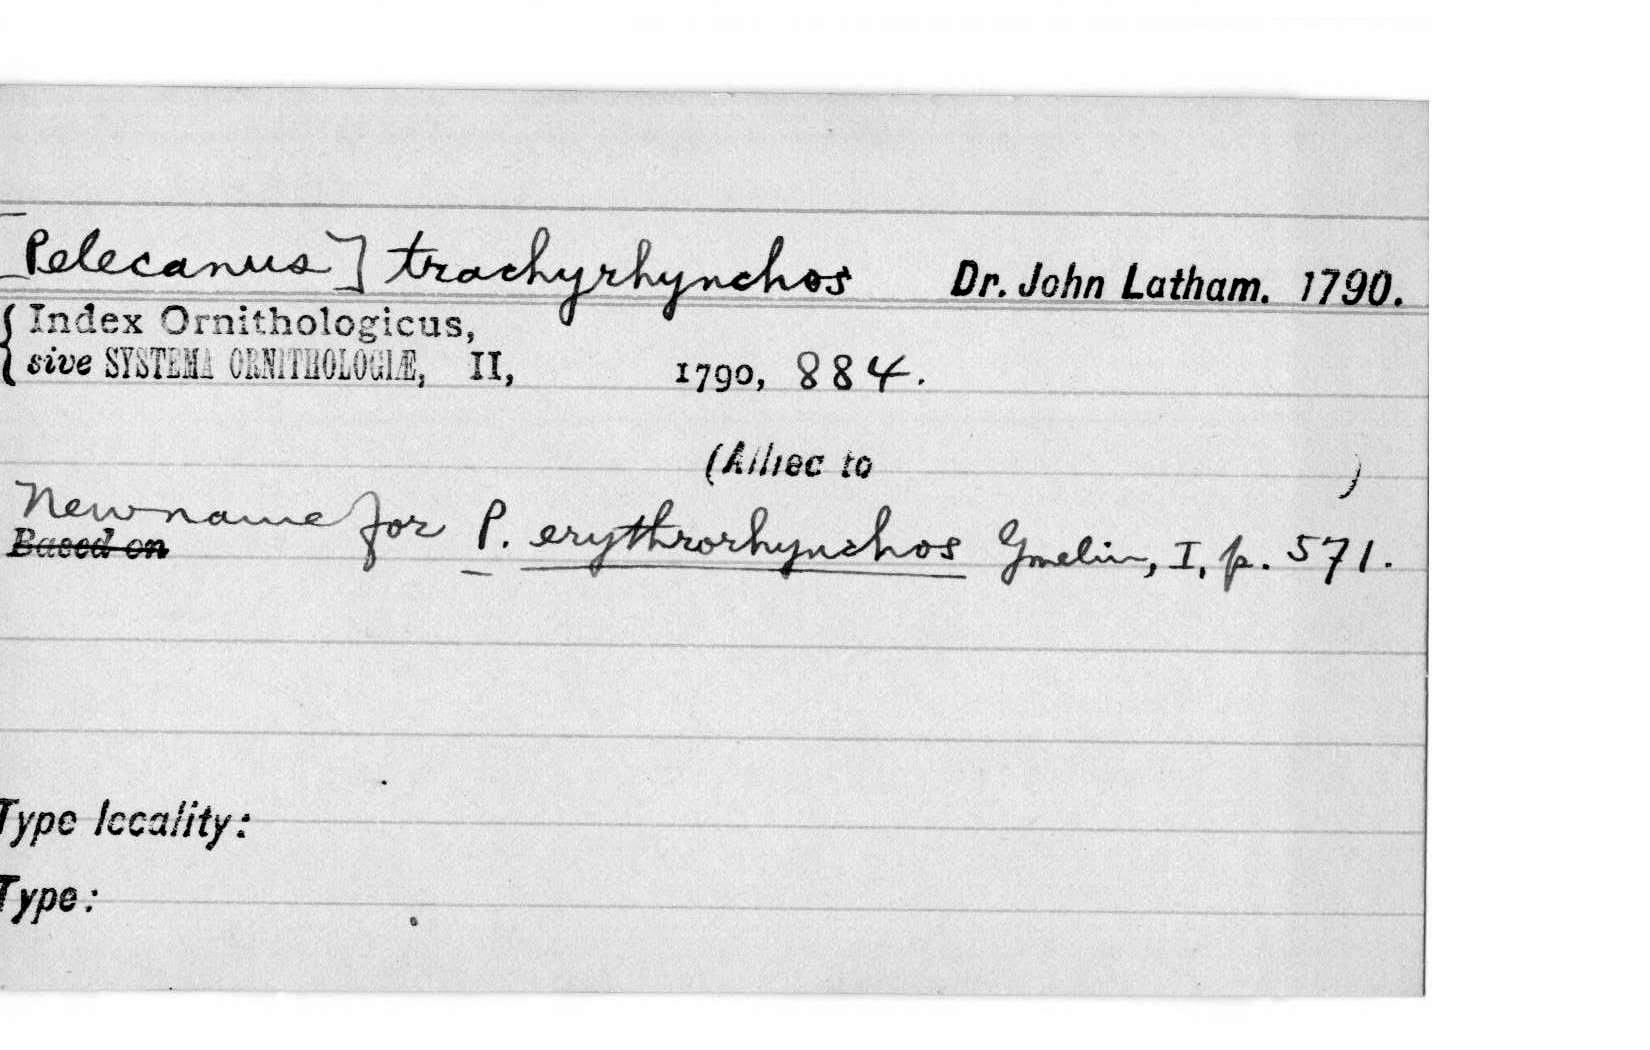 [Pelecanus] trachyrhynchos Dr. John Latham. 1790.
{Index Ornithologicus,
sive SYSTEMA ORNITHOLOGIÆ, II, 1790, 884.
(Allied to )
New name for P. erythrorhynchos Gmelin, I, p. 571.
Based on
Type locality:
Type: